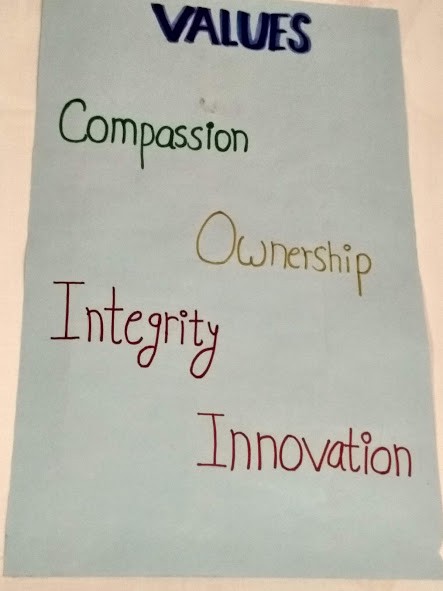 VALUES
Compassion
Ownership
Integrity
Innovation